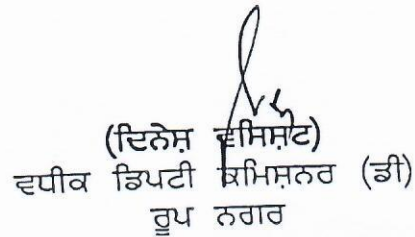 (ਦਿਨੇਸ਼ ਵਸਿਸ਼ਟ)
ਵਧੀਕ ਡਿਪਟੀ ਕਮਿਸ਼ਨਰ (ਡੀ)
ਰੂਪ ਨਗਰ